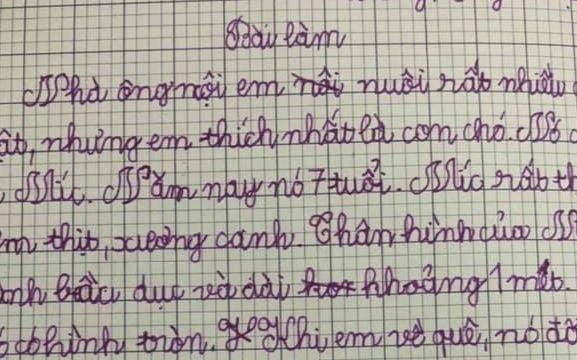 Bài làm
Nhà ông nội em nuôi rất nhiều
vật, nhưng em thích nhất là con chó. Nó
Míc. Năm nay nó 7 tuổi. Míc rất
thịt, xương canh. Thân hình của
bầu dục và dài khoảng 1 mét.
có hình tròn. Khi em về quê, nó